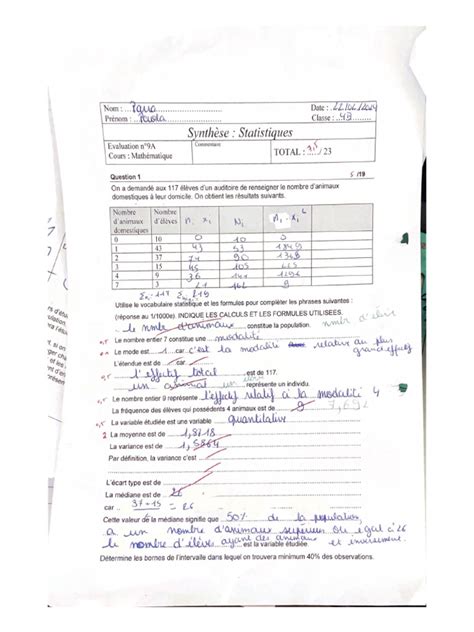 Nom : Papa Date : 22/02/2024
Prénom : Paola Classe : 4B
Synthèse : Statistiques
Evaluation n°9A
Cours : Mathématique
Commentaire
TOTAL : 7,5 / 23
Question 1 5 /19
On a demandé aux 117 élèves d'un auditoire de renseigner le nombre d'animaux
domestiques à leur domicile. On obtient les résultats suivants.
Nombre d'animaux domestiques Nombre d'élèves ni xi Ni
0 10 0 10 0
1 43 43 53
2 37 74 90
3 15 45 105
4 9 36
7 3 21
Utilise le vocabulaire statistique et les formules pour compléter les phrases suivantes :
(réponse au 1/1000e). INDIQUE LES CALCULS ET LES FORMULES UTILISEES.
le nmbr d'animaux constitue la population. nmbr d'élève
0,5 Le nombre entier 7 constitue une modalité
Le mode est 1 car c'est la modalité relative au plus grand effectif
L'étendue est de car
0,5 l'effectif total est de 117.
un animal un élève représente un individu.
0,5 Le nombre entier 9 représente l'effectif relatif à la modalité 4
La fréquence des élèves qui possèdent 4 animaux est de 9 7,692
0,5 La variable étudiée est une variable quantitative
2 La moyenne est de 1,8718
La variance est de 1,5864
Par définition, la variance c'est
L'écart type est de
La médiane est de 26
car 37+15 = 26
Cette valeur de la médiane signifie que 50% de la population,
a un nombre d'animaux supérieur ou égal à 26
et inversement.
le nombre d'élèves ayant des animaux est la variable étudiée.
Détermine les bornes de l'intervalle dans lequel on trouvera minimum 40% des observations.